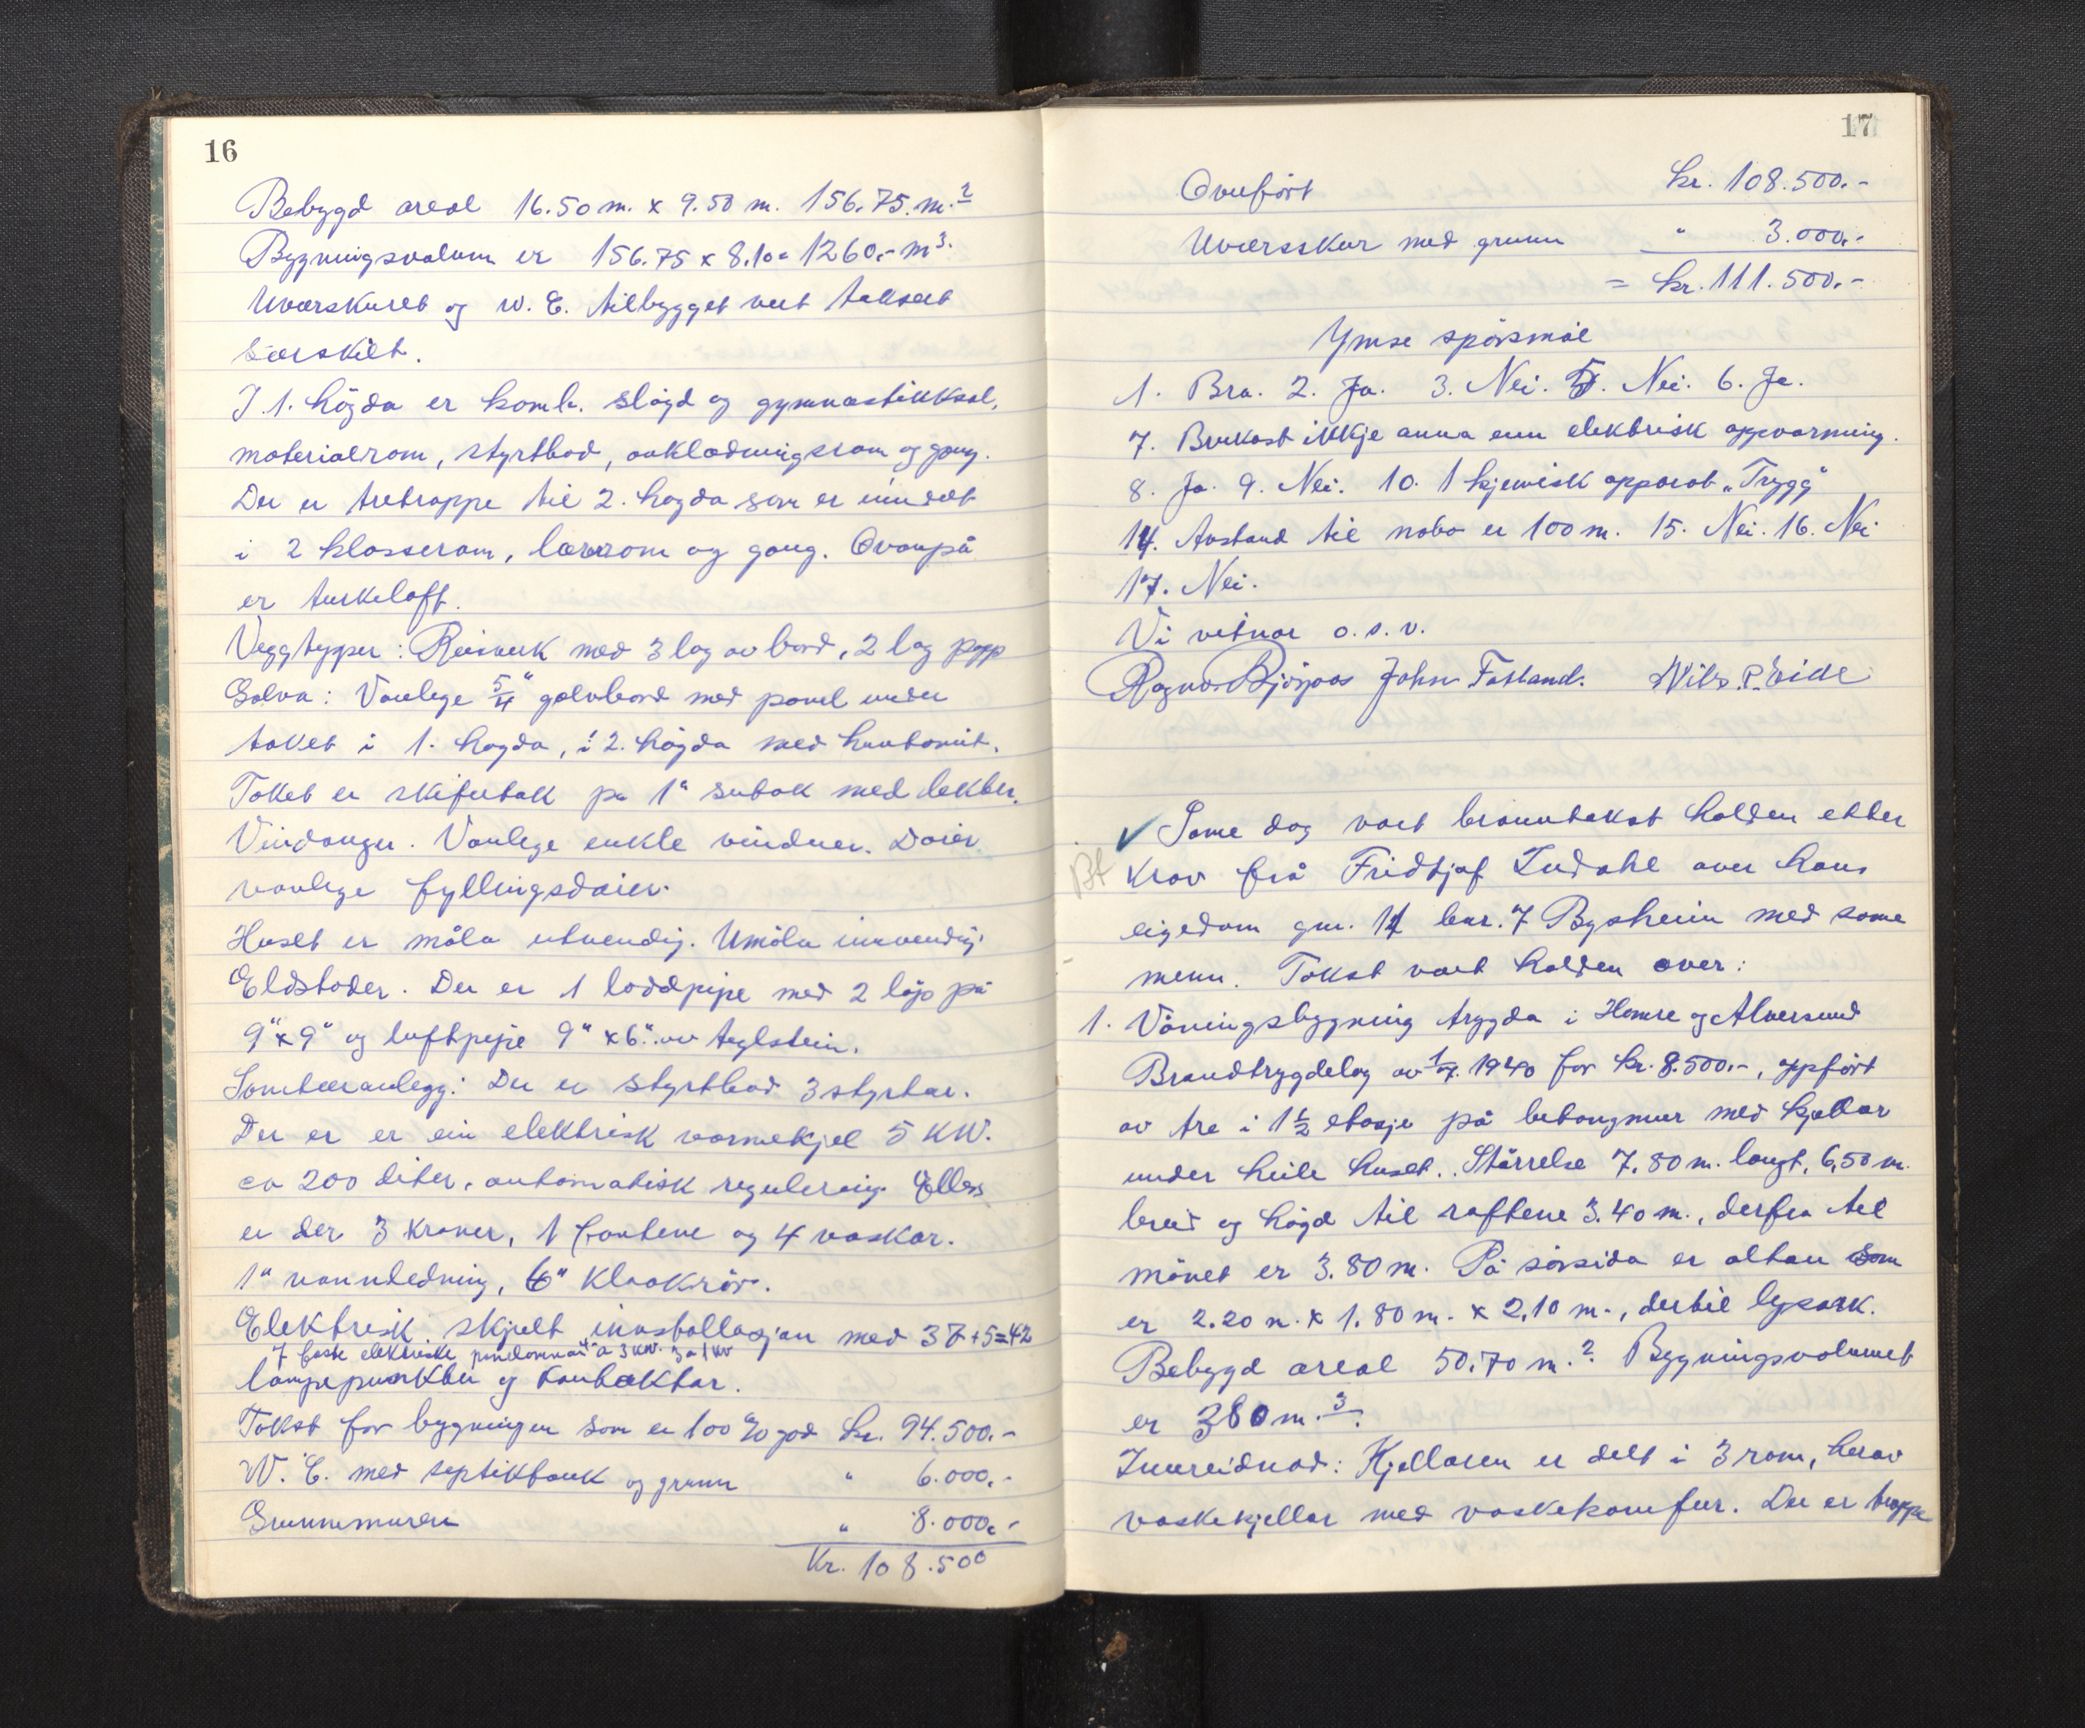 16
Bebygd areal 16.50 m. x 9.50 m. 156.75. m.2
Bygningsvolum er 156.75 x 8.10 = 1260.- m3.
Uværskuret og W. C. tilbygget vert taksert
særskilt.
I 1. högda er komb. slöjd og gymnastikksal,
materialrom, styrtbad, avklædningsrom og gang.
Der er tretrappe til 2. högda som er inndelt
i 2 klasserom, lærrom og gang. Ovanpå
er turkeloft.
Veggtyper: Reisverk med 3 lag av bord, 2 lag papp
Golva: Vanlege 5/4" golvbord med panel under
taket i 1. högda, i 2. högda med huntonit.
Taket er skifertak på 1" sutak med lekter.
Vindauger. Vanlege enkle vinduer. Dører
vanlege fyllingsdører.
Huset er måla utvendig. Umåla innvendig.
Eldstader. Der er 1 loddpipe med 2 løp på
9" x 9" og luftpipe 9" x 6" av teglstein.
Sanitæranlegg: Der er styrtbad 3 styrtar.
Der er er ein elektrisk varmekjel 5 KW.
ca 200 liter, automatisk regulering. Ellers
er der 3 kraner, 1 fontene og 4 vaskar.
1" vannledning, 6" kloakrör.
Elektrisk. skjult innstallasjon med 37+5=42
7 faste elektriske à 3 KW. 3 a 1 KW
lampepunkter og kontaktar.
Takst for bygningen som er 100 % god kr. 94.500.-
W. C. med septiktank og grunn " 6.000.-
Grunnmuren " 8.000.-
Kr. 108.500
17
Overfört kr. 108.500.-
Uværsskur med grunn " 3.000.-
= kr. 111.500.-
Ymse spörsmål
1. Bra. 2. Ja. 3. Nei. 5. Nei. 6. Ja.
7. Brukast ikkje anna enn elektrisk oppvarming.
8. Ja. 9. Nei. 10. 1 kjemisk apparat „Trygg"
14. Avstand til nabo er 100 m. 15. Nei. 16. Nei
17. Nei.
Vi vitnar o.s.v.
Ragnar Bjørjaas John Fatland. Nils. P. Eide
Same dag vart branntakst halden etter
Bt
krav frå Fridtjof Indahl over hans
eigedom gnr. 14 bnr. 7 Bysheim med same
menn. Takst vart halden over:
1. Våningsbygning trygda i Hamre og Alversund
Brandtrygdelag av 1/7. 1940 for kr. 8.500.-, oppfört
av tre i 1 1/2 etasje på betongmur med kjellar
under heile huset. Störrelse 7,80 m. langt, 6,50 m.
breid og högd til raftene 3.40 m., derfra til
mönet er 3.80 m. På sörsida er altan som
er 2.20 m. x 1.80 m. x 2,10 m., dertil lysark.
Bebygd areal 50.70 m.2 Bygningsvolumet
er 380 m.3.
Innreidnad: Kjellaren er delt i 3 rom, herav
vaskekjellar med vaskekomfur. Der er trappe